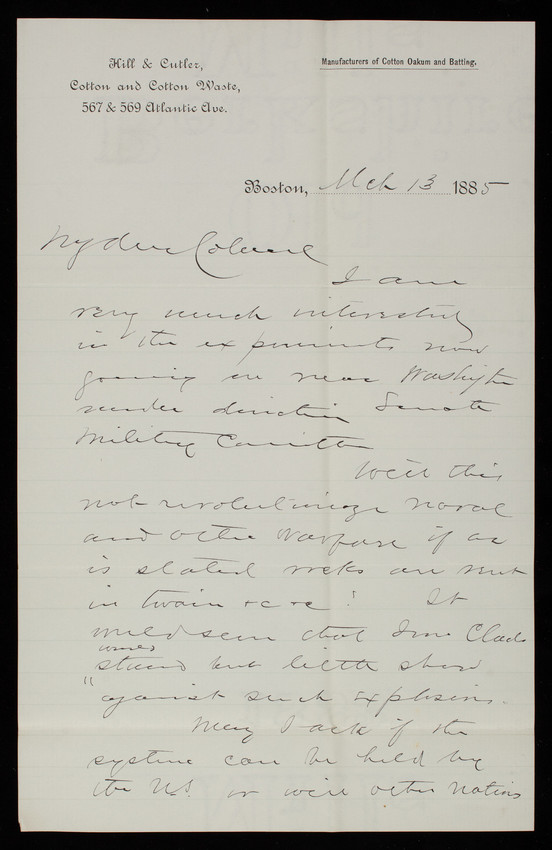 Hill & Cutler,
Cotton and Cotton Waste,
567 & 569 Atlantic Ave.
Manufacturers of Cotton Oakum and Batting.
Boston, Mch 13 1885
My dear Colonel
I am
very much interested
in the experiments now
going on near Washington
under direction Senate
Military Committee
Will this
not revolutionize naval
and other warfare if as
is stated rocks are rent
in twain &c &c? It
would seem that Iron Clads
would
stand but little show
"against such explosions.
May I ask if the
system can be held by
the U.S. or will other Nations